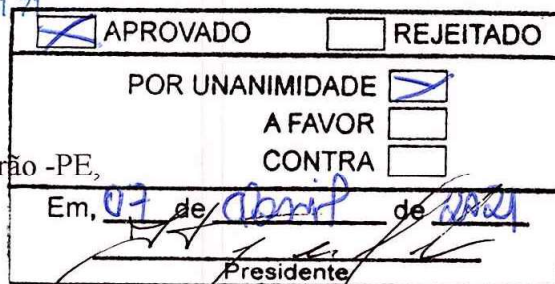 APROVADO REJEITADO
POR UNANIMIDADE
A FAVOR
rão -PE, CONTRA
Em, 07 de abril de 2021
Presidente